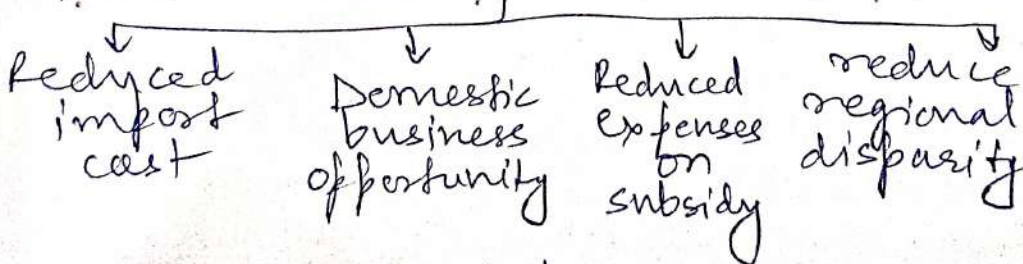 Reduced
import
cost
Domestic
business
opportunity
Reduced
expenses
on
subsidy
reduce
regional
disparity